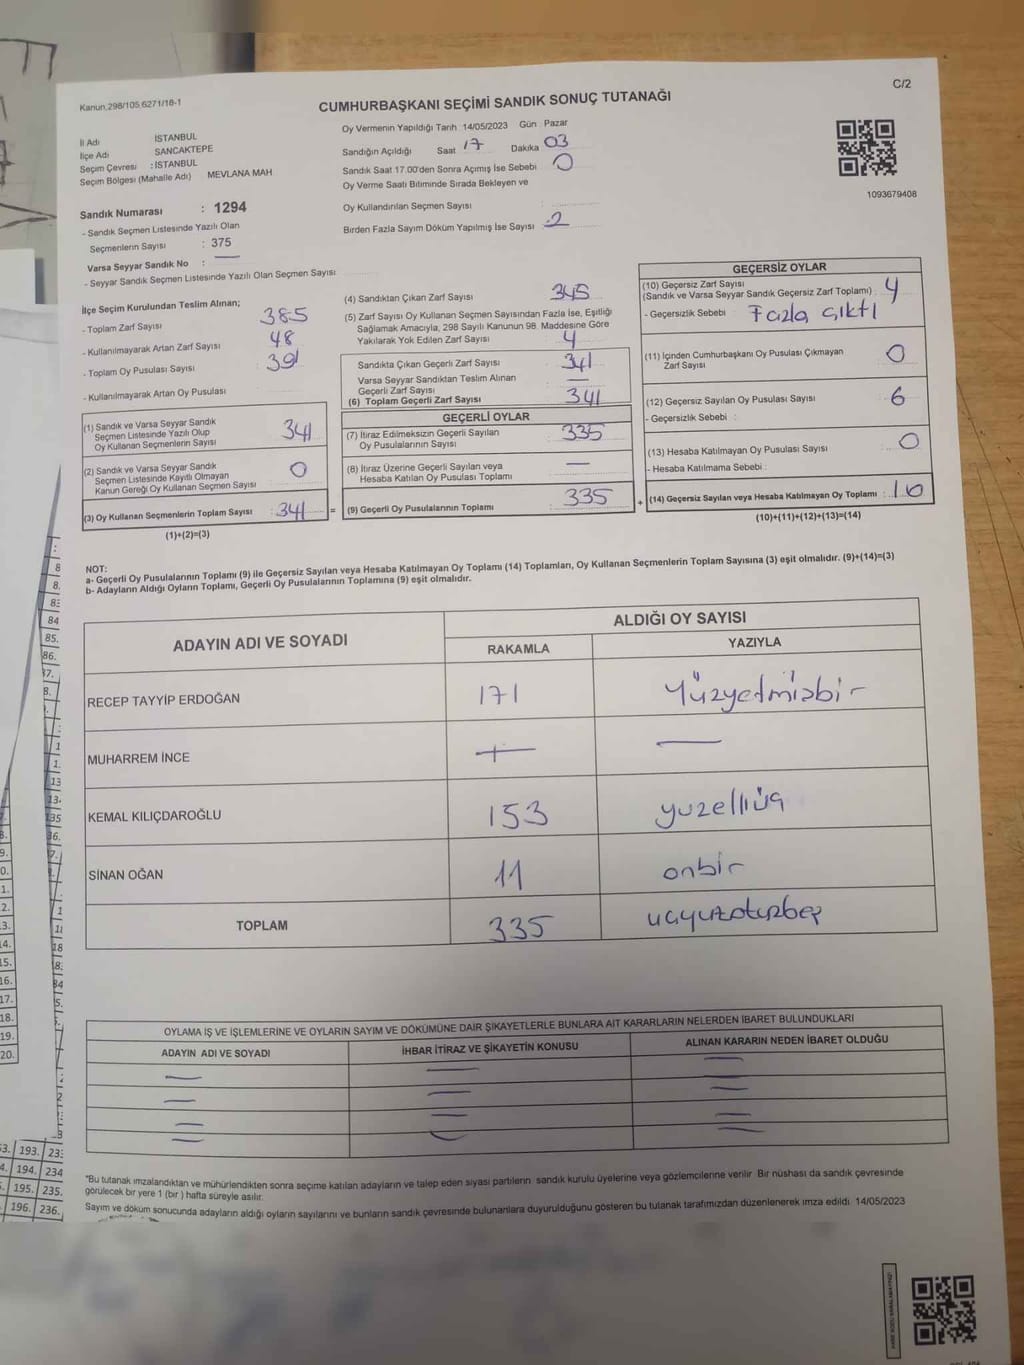 Kanun.298/105,6271/18-1
C/2
CUMHURBAŞKANI SEÇİMİ SANDIK SONUÇ TUTANAĞI
İl Adı İSTANBUL
İlçe Adı SANCAKTEPE
Seçim Çevresi : İSTANBUL
Seçim Bölgesi (Mahalle Adı) MEVLANA MAH
Oy Vermenin Yapıldığı Tarih : 14/05/2023 Gün : Pazar
Sandığın Açıldığı Saat 17 Dakika 03
Sandık Saat 17.00'den Sonra Açımış İse Sebebi 0
Oy Verme Saati Bitiminde Sırada Bekleyen ve
Oy Kullandırılan Seçmen Sayısı :
Birden Fazla Sayım Döküm Yapılmış İse Sayısı 2
1093679408
Sandık Numarası : 1294
- Sandık Seçmen Listesinde Yazılı Olan
Seçmenlerin Sayısı : 375
Varsa Seyyar Sandık No : —
- Seyyar Sandık Seçmen Listesinde Yazılı Olan Seçmen Sayısı
İlçe Seçim Kurulundan Teslim Alınan;
- Toplam Zarf Sayısı 385
- Kullanılmayarak Artan Zarf Sayısı 48
- Toplam Oy Pusulası Sayısı 391
- Kullanılmayarak Artan Oy Pusulası
(1) Sandık ve Varsa Seyyar Sandık
Seçmen Listesinde Yazılı Olup
Oy Kullanan Seçmenlerin Sayısı 341
(2) Sandık ve Varsa Seyyar Sandık
Seçmen Listesinde Kayıtlı Olmayan
Kanun Gereği Oy Kullanan Seçmen Sayısı 0
(3) Oy Kullanan Seçmenlerin Toplam Sayısı : 341 =
(1)+(2)=(3)
(4) Sandıktan Çıkan Zarf Sayısı 345
(5) Zarf Sayısı Oy Kullanan Seçmen Sayısından Fazla İse, Eşitliği
Sağlamak Amacıyla, 298 Sayılı Kanunun 98. Maddesine Göre
Yakılarak Yok Edilen Zarf Sayısı 4
Sandıkta Çıkan Geçerli Zarf Sayısı 341
Varsa Seyyar Sandıktan Teslim Alınan
Geçerli Zarf Sayısı —
(6) Toplam Geçerli Zarf Sayısı 341
GEÇERLİ OYLAR
(7) İtiraz Edilmeksizin Geçerli Sayılan
Oy Pusulalarının Sayısı 335
(8) İtiraz Üzerine Geçerli Sayılan veya
Hesaba Katılan Oy Pusulası Toplamı —
(9) Geçerli Oy Pusulalarının Toplamı 335 +
GEÇERSİZ OYLAR
(10) Geçersiz Zarf Sayısı
(Sandık ve Varsa Seyyar Sandık Geçersiz Zarf Toplamı) : 4
- Geçersizlik Sebebi : Fazla çıktı
(11) İçinden Cumhurbaşkanı Oy Pusulası Çıkmayan
Zarf Sayısı 0
(12) Geçersiz Sayılan Oy Pusulası Sayısı 6
- Geçersizlik Sebebi :
(13) Hesaba Katılmayan Oy Pusulası Sayısı 0
- Hesaba Katılmama Sebebi :
(14) Geçersiz Sayılan veya Hesaba Katılmayan Oy Toplamı : 10
(10)+(11)+(12)+(13)=(14)
NOT:
a- Geçerli Oy Pusulalarının Toplamı (9) ile Geçersiz Sayılan veya Hesaba Katılmayan Oy Toplamı (14) Toplamları, Oy Kullanan Seçmenlerin Toplam Sayısına (3) eşit olmalıdır. (9)+(14)=(3)
b- Adayların Aldığı Oyların Toplamı, Geçerli Oy Pusulalarının Toplamına (9) eşit olmalıdır.
ADAYIN ADI VE SOYADI ALDIĞI OY SAYISI
RAKAMLA YAZIYLA
RECEP TAYYİP ERDOĞAN 171 Yüzyetmişbir
MUHARREM İNCE — —
KEMAL KILIÇDAROĞLU 153 yuzelliüç
SİNAN OĞAN 11 onbir
TOPLAM 335 uçyuzotuzbeş
OYLAMA İŞ VE İŞLEMLERİNE VE OYLARIN SAYIM VE DÖKÜMÜNE DAİR ŞİKAYETLERLE BUNLARA AİT KARARLARIN NELERDEN İBARET BULUNDUKLARI
ADAYIN ADI VE SOYADI İHBAR İTİRAZ VE ŞİKAYETİN KONUSU ALINAN KARARIN NEDEN İBARET OLDUĞU
— — —
— — —
— — —
— — —
"Bu tutanak imzalandıktan ve mühürlendikten sonra seçime katılan adayların ve talep eden siyasi partilerin sandık kurulu üyelerine veya gözlemcilerine verilir. Bir nüshası da sandık çevresinde
görülecek bir yere 1 (bir) hafta süreyle asılır.
Sayım ve döküm sonucunda adayların aldığı oyların sayılarını ve bunların sandık çevresinde bulunanlara duyurulduğunu gösteren bu tutanak tarafımızdan düzenlenerek imza edildi. 14/05/2023
193.
194. 234
195. 235.
196. 236.